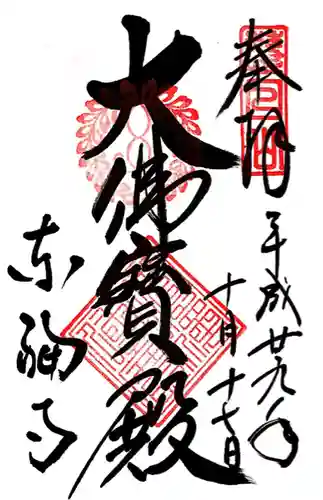 奉拝
平成廿九年
十月十七日
大佛寳殿
東福寺